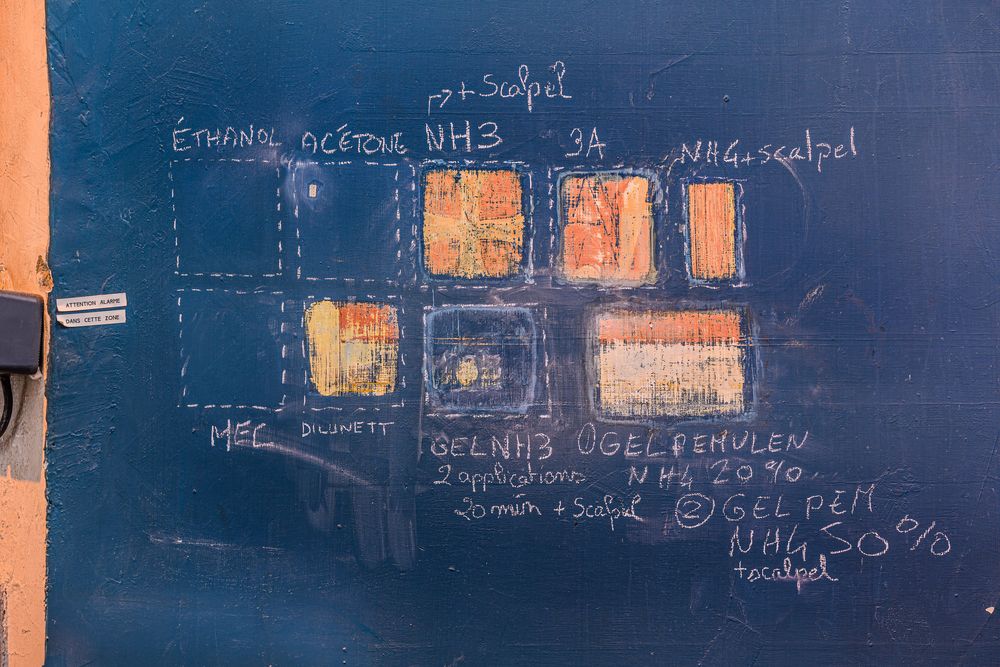 + Scalpel
ÉTHANOL ACÉTONE NH3 3A NH4+scalpel
ATTENTION ALARME
DANS CETTE ZONE
MEC DILUNETT
GELNH3
2 applications
20 min + Scalpel
① GEL PEMULEN
NH4 20%
② GEL PEM
NH4 50%
+scalpel